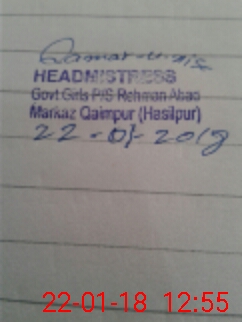 Qamar-un-nisa
HEADMISTRESS
Govt Girls P/S Rehman Abad
Markaz Qaimpur (Hasilpur)
22-01-2018
22-01-18 12:55